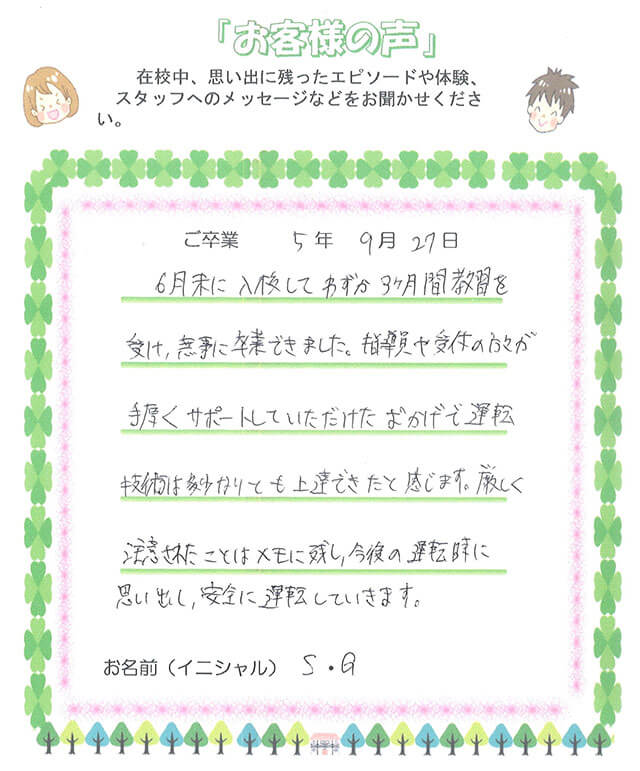 「お客様の声」
在校中、思い出に残ったエピソードや体験、
スタッフへのメッセージなどをお聞かせくださ
い。
ご卒業 5年 9月 27日
6月末に入校してわずか3ヶ月間教習を
受け,無事に卒業できました。指導員や受付の方々が
手厚くサポートしていただけたおかげで運転
技術は多少なりとも上達できたと感じます。厳しく
注意されたことはメモに残し,今後の運転時に
思い出し,安全に運転していきます。
お名前（イニシャル） S・G